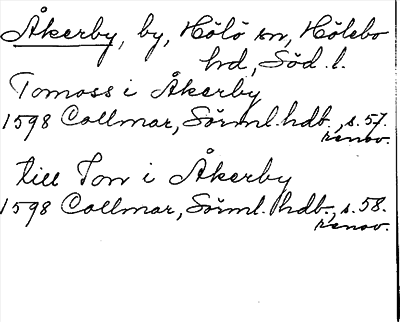 Åkerby, by, Hölö sn, Hölebo
hd, Söd. l.
Tomass i Åkerby
1598 Collmar, Sörml. hdb., s. 57.
renov.
till Ton i Åkerby
1598 Collmar, Sörml. hdb., s. 58.
renov.